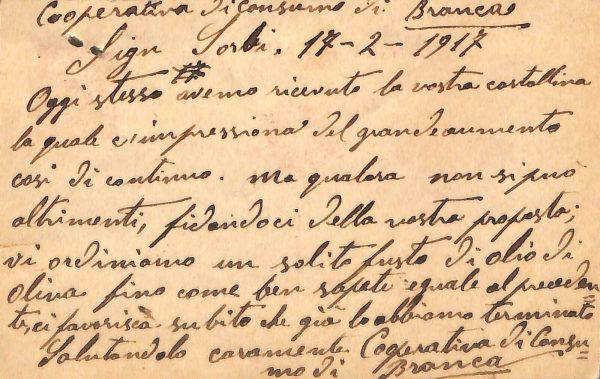 Cooperativa di Consumo di Branca
Sign Sorbi. 17-2-1917
Oggi stesso avemo ricevuto la vostra cartollina
la quale c'impressiona del grande aumento
cosi di continuo. Ma qualora non si può
altrimenti, fidandoci della vostra proposta;
vi ordiniamo un solito fusto di olio di
oliva fino come ben sapete eguale al preceden
te, ci favorisca subito che già lo abbiamo terminato
Salutandolo caramente Cooperativa di Consu=
mo di Branca